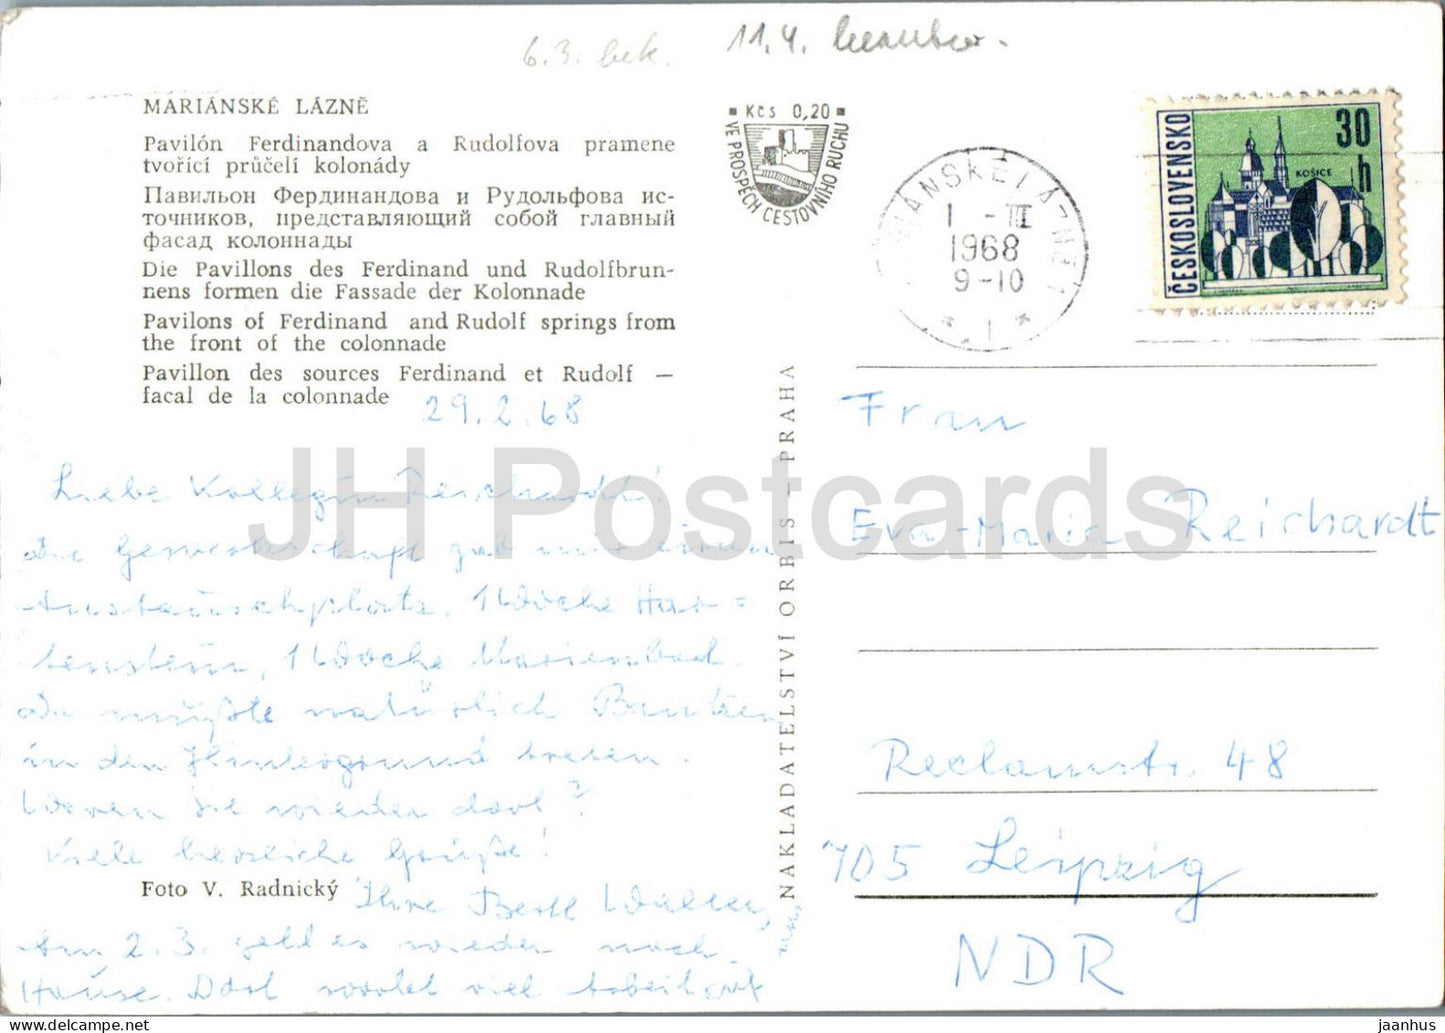 6.3. bek. 11.4.
MARIÁNSKÉ LÁZNĚ
Pavilón Ferdinandova a Rudolfova pramene
tvořící průčelí kolonády
Павильон Фердинандова и Рудольфова ис-
точников, представляющий собой главный
фасад колоннады
Die Pavillons des Ferdinand und Rudolfbrun-
nens formen die Fassade der Kolonnade
Pavilons of Ferdinand and Rudolf springs from
the front of the colonnade
Pavillon des sources Ferdinand et Rudolf —
facal de la colonnade
29.2.68
Liebe Kollegin Reichardt!
Die Gewerkschaft gab mir einen
Austauschplatz, 1 Woche Har=
tenstein, 1 Woche Marienbad.
Da müßte natürlich Bautzen
in den Hintergrund treten.
Waren Sie wieder dort?
Viele herzliche Grüße!
Foto V. Radnický
Ihre Walter,
Am 2.3. geht es wieder nach
Hause. Dort wartet viel Arbeit auf
uns
■ Kčs 0,20 ■
VE PROSPĚCH CESTOVNÍHO RUCHU
NAKLADATELSTVÍ ORBIS — PRAHA
MARIÁNSKÉ LÁZNĚ 1
1 -III
1968
9-10
* 1 *
ČESKOSLOVENSKO
30 h
KOŠICE
Frau
Eva-Maria Reichardt
Reclamstr. 48
705 Leipzig
NDR
JH Postcards
jaanhus — delcampe.net